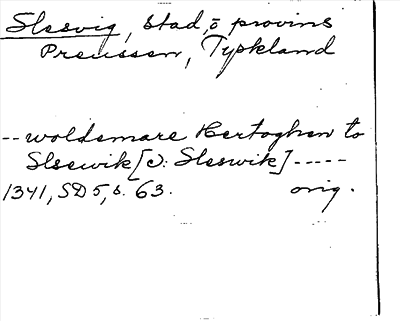 Slesvig, stad, o provins
Preussen, Tyskland
-- woldemare Hertoghen to
Slsewik [ɔ: Sleswik] -----
1341, SD 5, s. 63. orig.